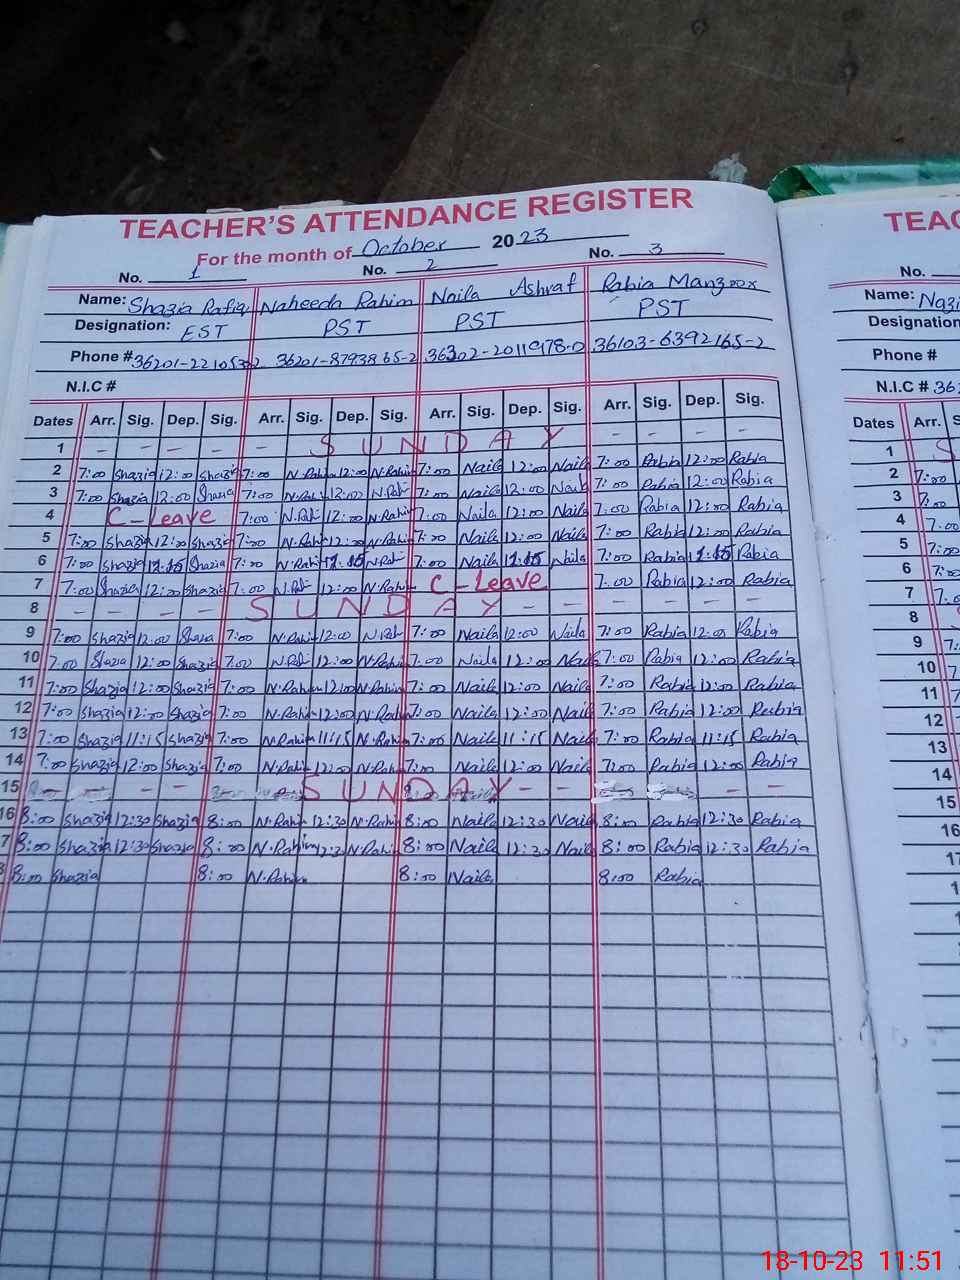 TEACHER'S ATTENDANCE REGISTER
For the month of October 2023
No. 1 No. 2 No. 3
Name: Shazia Rafiq Naheeda Rahim Naila Ashraf Rabia Manzoor
Designation: EST PST PST PST
Phone # 36201-2210532-2 36201-8793865-2 36302-2011978-0 36103-6392165-2
N.I.C #
Dates Arr. Sig. Dep. Sig. Arr. Sig. Dep. Sig. Arr. Sig. Dep. Sig. Arr. Sig. Dep. Sig.
1 - - - - SUNDAY - - - -
2 7:00 Shazia 12:00 Shazia 7:00 N.Rahim 12:00 N.Rahim 7:00 Naila 12:00 Naila 7:00 Rabia 12:00 Rabia
3 7:00 Shazia 12:00 Shazia 7:00 N.Rahim 12:00 N.Rah 7:00 Naila 12:00 Naila 7:00 Rabia 12:00 Rabia
4 C-Leave 7:00 N.Rah 12:00 N.Rahim 7:00 Naila 12:00 Naila 7:00 Rabia 12:00 Rabia
5 7:00 Shazia 12:00 Shazia 7:00 N.Rahim 12:00 N.Rahim 7:00 Naila 12:00 Naila 7:00 Rabia 12:00 Rabia
6 7:00 Shazia 12:15 Shazia 7:00 N.Rahim 12:15 N.Rah 7:00 Naila 12:15 Naila 7:00 Rabia 12:15 Rabia
7 7:00 Shazia 12:00 Shazia 7:00 N.Rah 12:00 N.Rahim C-Leave 7:00 Rabia 12:00 Rabia
8 - - - - SUNDAY - - - - - -
9 7:00 Shazia 12:00 Shazia 7:00 N.Rahim 12:00 N.Rah 7:00 Naila 12:00 Naila 7:00 Rabia 12:00 Rabia
10 7:00 Shazia 12:00 Shazia 7:00 N.Rah 12:00 N.Rahim 7:00 Naila 12:00 Naila 7:00 Rabia 12:00 Rabia
11 7:00 Shazia 12:00 Shazia 7:00 N.Rahim 12:00 N.Rahim 7:00 Naila 12:00 Naila 7:00 Rabia 12:00 Rabia
12 7:00 Shazia 12:00 Shazia 7:00 N.Rahim 12:00 N.Rahim 7:00 Naila 12:00 Naila 7:00 Rabia 12:00 Rabia
13 7:00 Shazia 11:15 Shazia 7:00 N.Rahim 11:15 N.Rahim 7:00 Naila 11:15 Naila 7:00 Rabia 11:15 Rabia
14 7:00 Shazia 12:00 Shazia 7:00 N.Rahim 12:00 N.Rahim 7:00 Naila 12:00 Naila 7:00 Rabia 12:00 Rabia
15 - - - - SUNDAY - - - -
16 8:00 Shazia 12:30 Shazia 8:00 N.Rahim 12:30 N.Rahim 8:00 Naila 12:30 Naila 8:00 Rabia 12:30 Rabia
7 8:00 Shazia 12:30 Shazia 8:00 N.Rahim 12:30 N.Rahim 8:00 Naila 12:30 Naila 8:00 Rabia 12:30 Rabia
8:00 Shazia 8:00 N.Rahim 8:00 Naila 8:00 Rabia
TEAC
No.
Name: Nazi
Designation
Phone #
N.I.C # 36
Dates Arr. S
1 S
2 7:00
3 7:00
4 7:00
5 7:00
6 7:00
7 7:0
8
9 7:
10 7
11 7
12
13
14
15
16
17
18-10-23 11:51